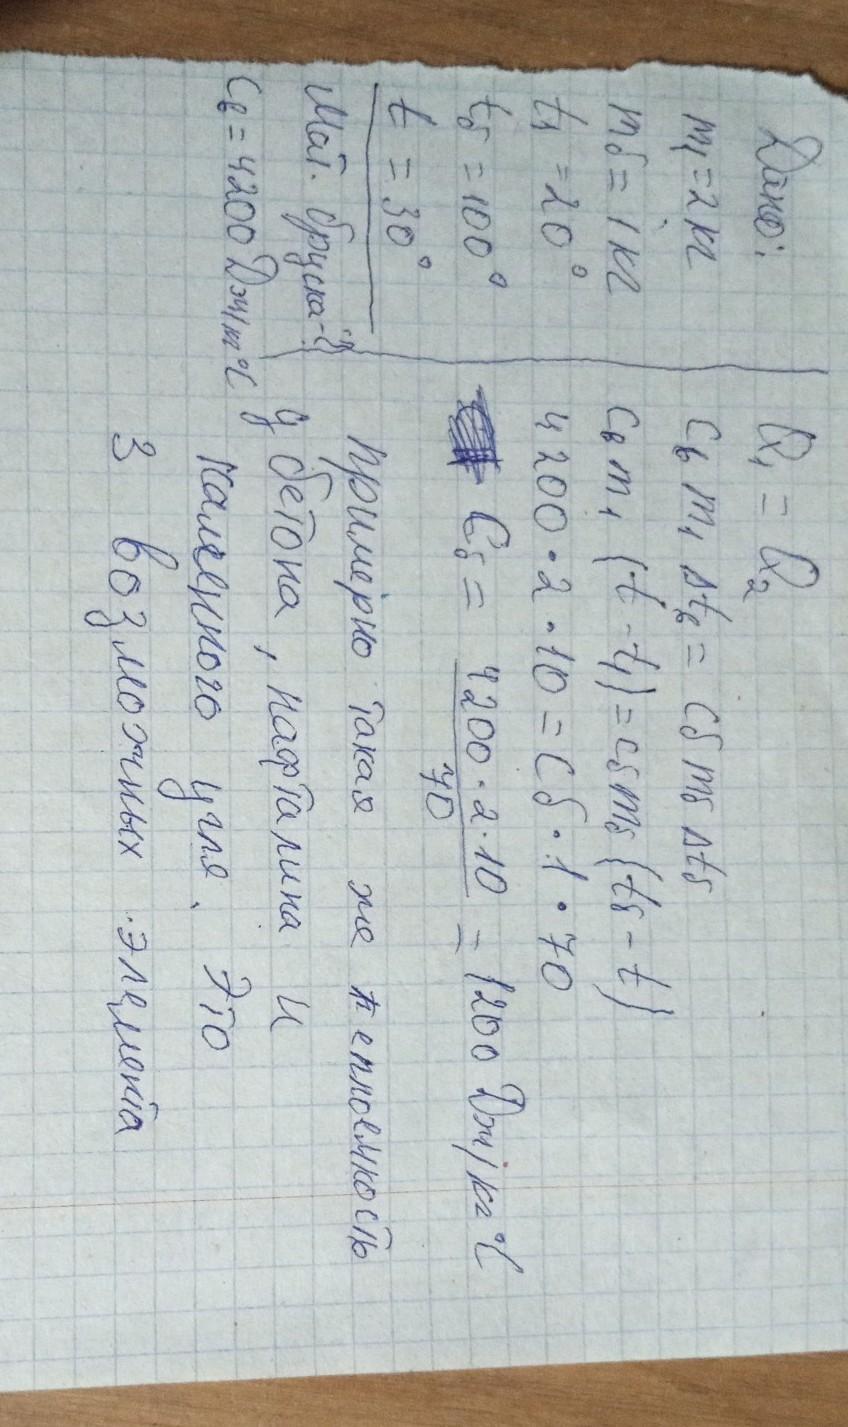 Дано:
m₁ = 2 кг
mб = 1 кг
t₁ = 20°
tб = 100°
t = 30°
Мат. бруска-?
Cв = 4200 Дж/кг°C
Q₁ = Q₂
Cв m₁ Δtв = Cб mб Δtб
Cв m₁ (t - t₁) = Cб mб (tб - t)
4200 · 2 · 10 = Cб · 1 · 70
Cб = 4200 · 2 · 10 / 70 = 1200 Дж/кг°C
Примерно такая же теплоемкость
у бетона, нафталина и
каменного угля. Это
3 возможных элемента